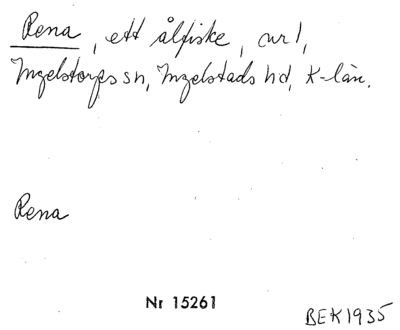 Rena, ett ålfiske, nr 1,
Ingelstorps sn, Ingelstads hd, K-län.
Rena
Nr 15261
BEK 1935